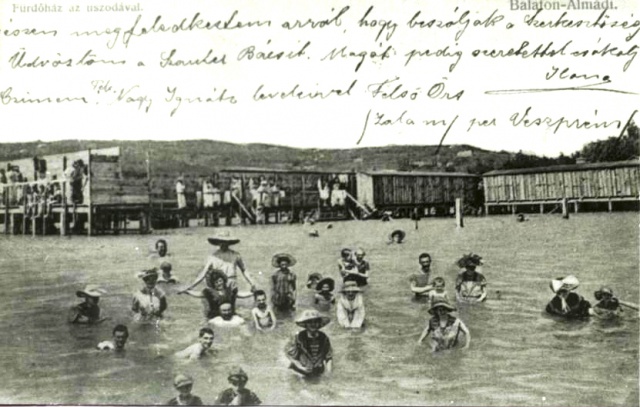 Fürdőház az uszodával.
Balaton-Almádi.
megfeledkeztem arról, hogy beszóljak a szerkesztőség
Üdvözlöm a Bácsit. Magát pedig szeretettel csókolj
Ilona
Czimem Nagy Ignácz levelével Felső Örs
/Zala m/ per Veszprém/